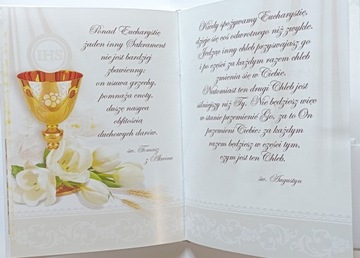 IHS
Ponad Eucharystię
żaden inny Sakrament
nie jest bardziej
zbawienny:
on usuwa grzechy,
pomnaża cnoty,
duszę nasyca
obfitością
duchowych darów.
św. Tomasz
z Akwinu
Kiedy spożywamy Eucharystię,
dzieje się coś odwrotnego niż zwykle.
Jedząc inny chleb przyswajasz go
i po części za każdym razem chleb
zmienia się w Ciebie.
Natomiast ten drugi Chleb jest
silniejszy niż Ty. Nie będziesz więc
w stanie przemienić Go, za to On
przemieni Ciebie: za każdym
razem będziesz w części tym,
czym jest ten Chleb.
św. Augustyn